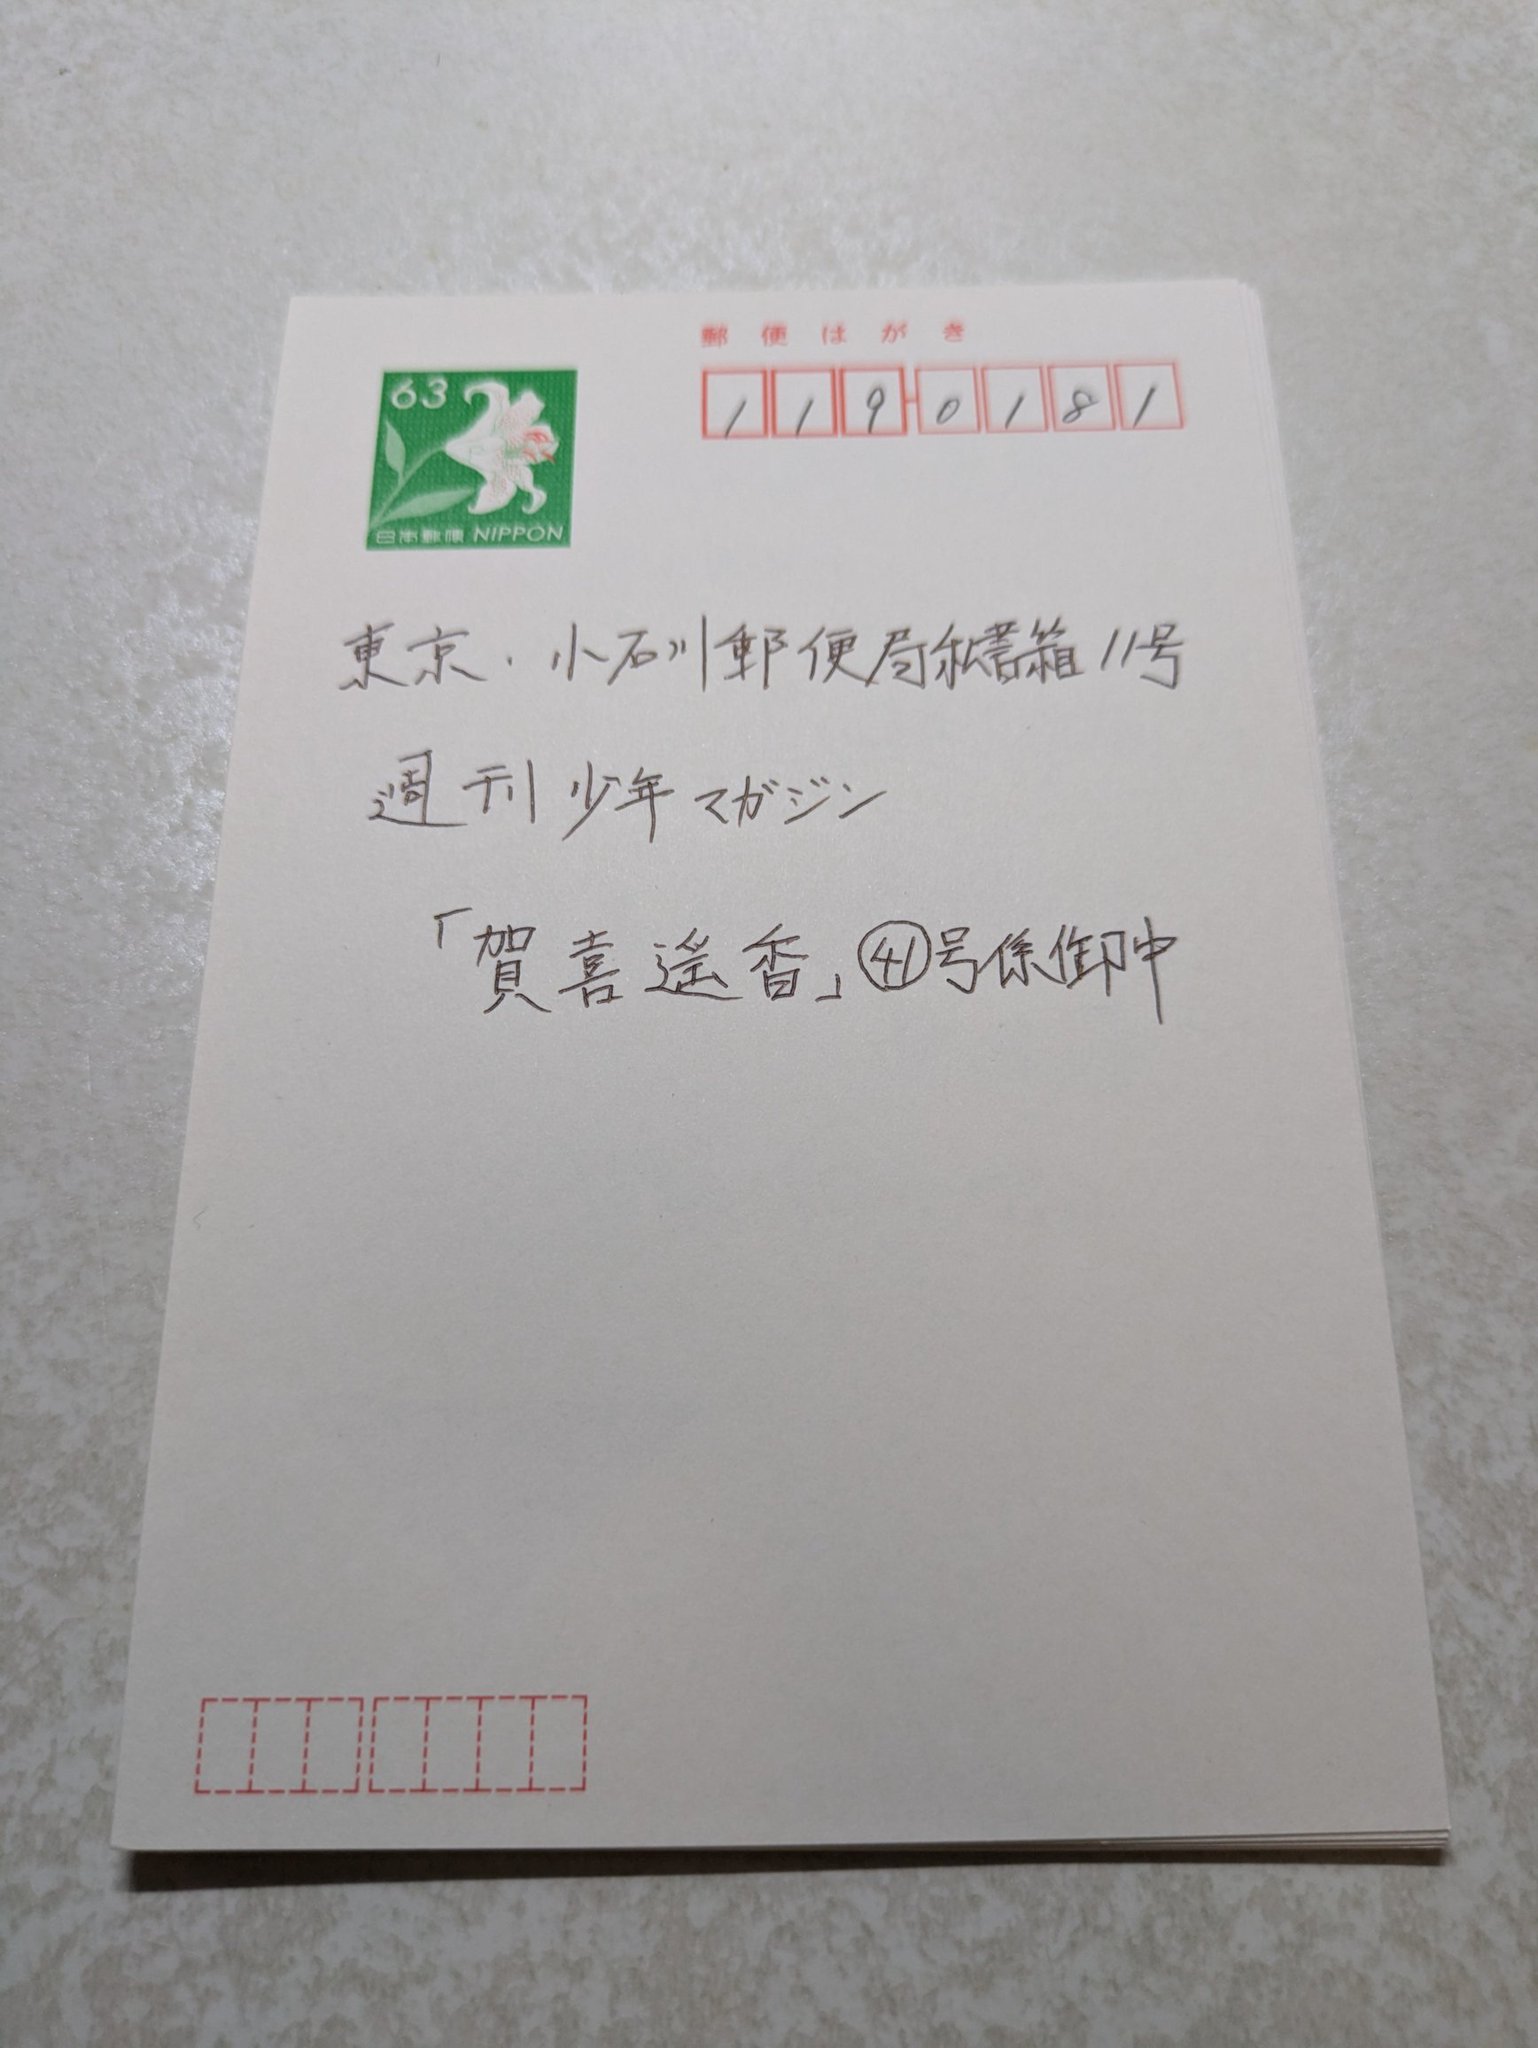 郵便はがき
63
1190181
日本郵便 NIPPON
東京・小石川郵便局私書箱11号
週刊少年マガジン
「賀喜遥香」㊶号係御中